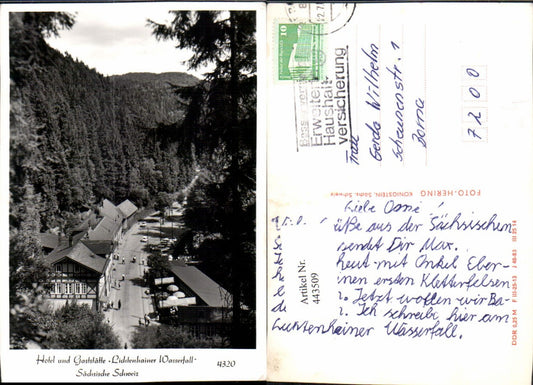 Hotel und Gaststätte "Lichtenhainer Wasserfall"
Sächsische Schweiz
4320
10
Erweiterte
Haushalt-
versicherung
Frau
Gerda Wilhelm
1
Borna
7200
FOTO-HERING KÖNIGSTEIN, Sächs. Schweiz
DDR 0,25 M
Artikel Nr.
443509
Liebe Omi!
üße aus der Sächsischen
sendet Dir Max.
heut mit Onkel Eber-
inen ersten Kletterfelsen
Jetzt wollen wir Ba-
Ich schreibe hier am
Lichtenhainer Wasserfall.